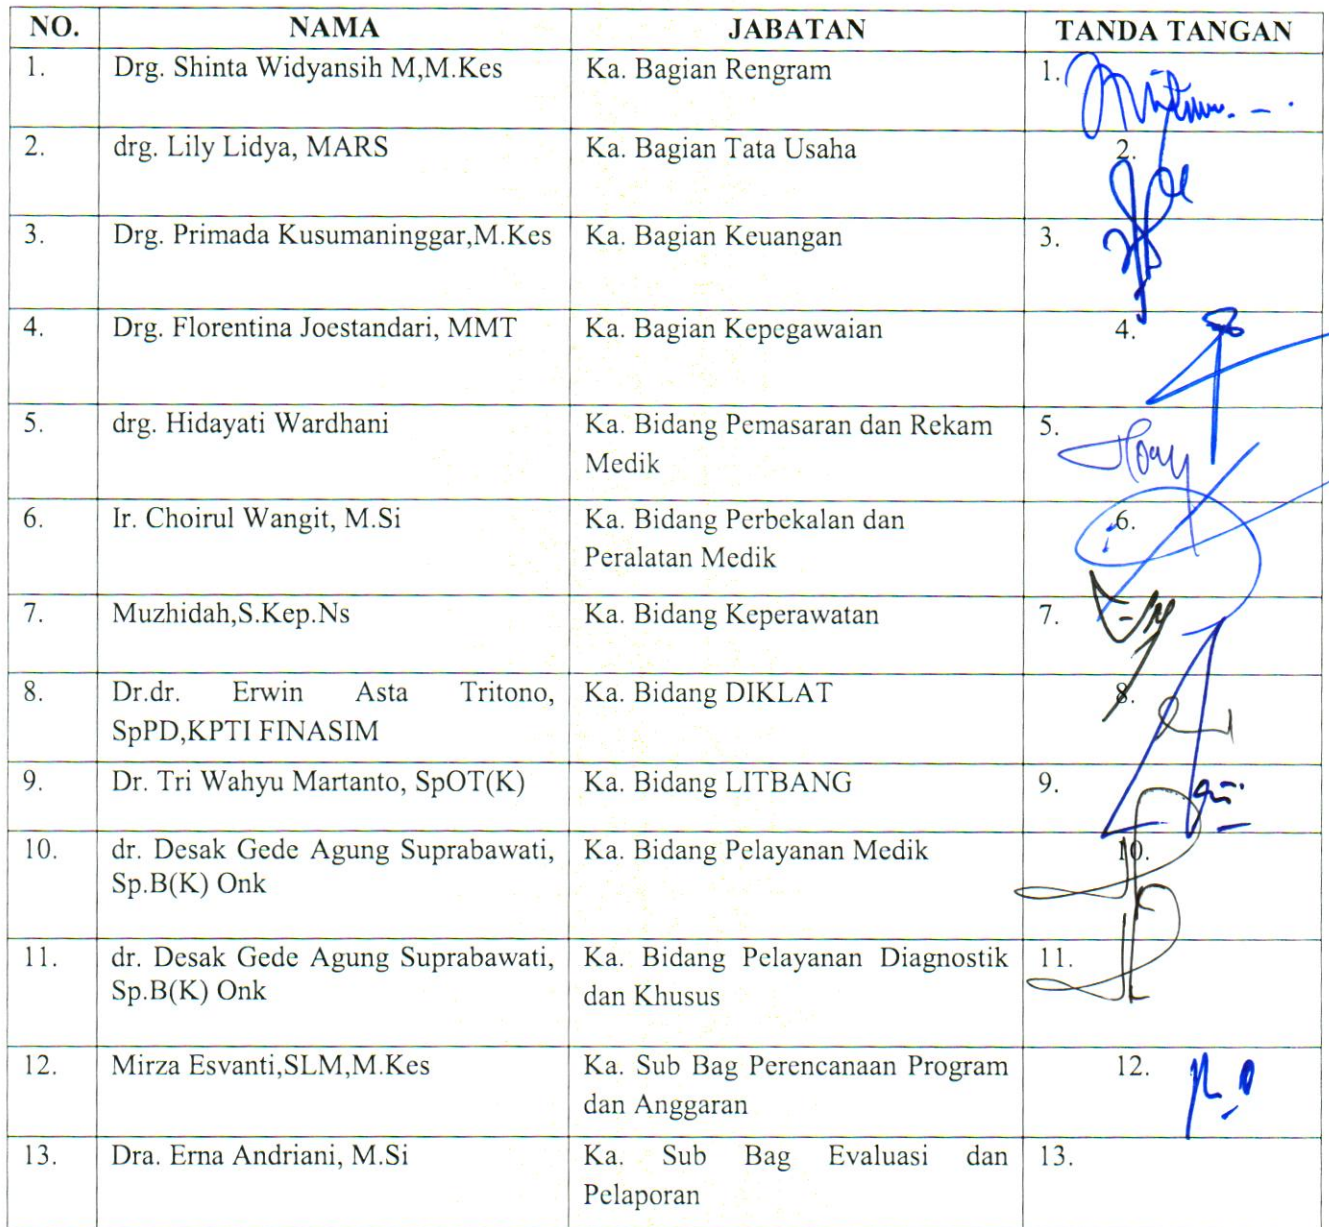 NO. NAMA JABATAN TANDA TANGAN
1. Drg. Shinta Widyansih M,M.Kes Ka. Bagian Rengram 1.
2. drg. Lily Lidya, MARS Ka. Bagian Tata Usaha 2.
3. Drg. Primada Kusumaninggar,M.Kes Ka. Bagian Keuangan 3.
4. Drg. Florentina Joestandari, MMT Ka. Bagian Kepegawaian 4.
5. drg. Hidayati Wardhani Ka. Bidang Pemasaran dan Rekam 5.
Medik
6. Ir. Choirul Wangit, M.Si Ka. Bidang Perbekalan dan 6.
Peralatan Medik
7. Muzhidah,S.Kep.Ns Ka. Bidang Keperawatan 7.
8. Dr.dr. Erwin Asta Tritono, Ka. Bidang DIKLAT 8.
SpPD,KPTI FINASIM
9. Dr. Tri Wahyu Martanto, SpOT(K) Ka. Bidang LITBANG 9.
10. dr. Desak Gede Agung Suprabawati, Ka. Bidang Pelayanan Medik 10.
Sp.B(K) Onk
11. dr. Desak Gede Agung Suprabawati, Ka. Bidang Pelayanan Diagnostik 11.
Sp.B(K) Onk dan Khusus
12. Mirza Esvanti,SLM,M.Kes Ka. Sub Bag Perencanaan Program 12.
dan Anggaran
13. Dra. Erna Andriani, M.Si Ka. Sub Bag Evaluasi dan 13.
Pelaporan